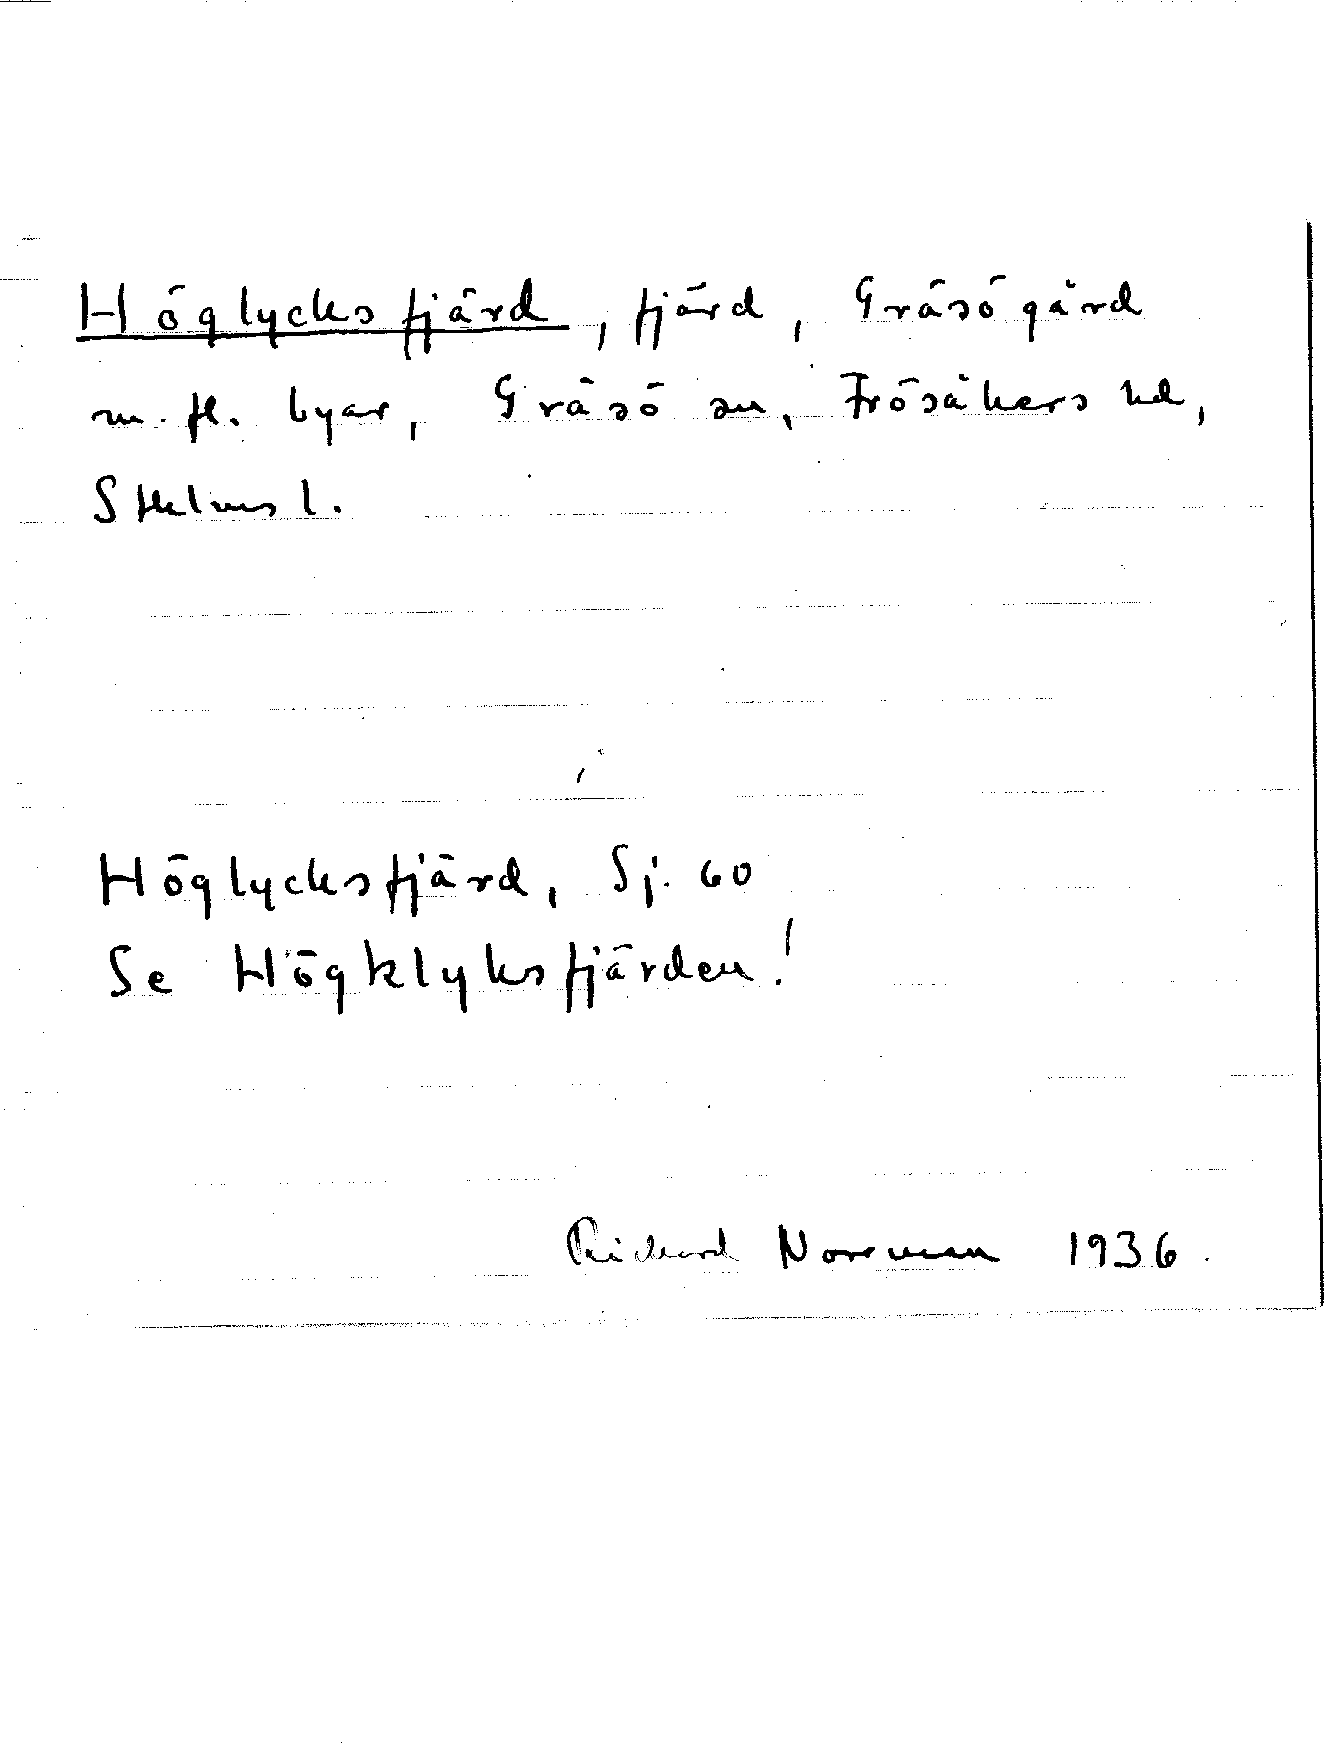 Höglycksfjärd, fjärd, Gräsögård
m. fl. byar, Gräsö sn, Frösåkers hd,
Sthlms l.
Höglycksfjärd, Sj. 60
Se Högklyksfjärden!
Richard Norrman 1936.